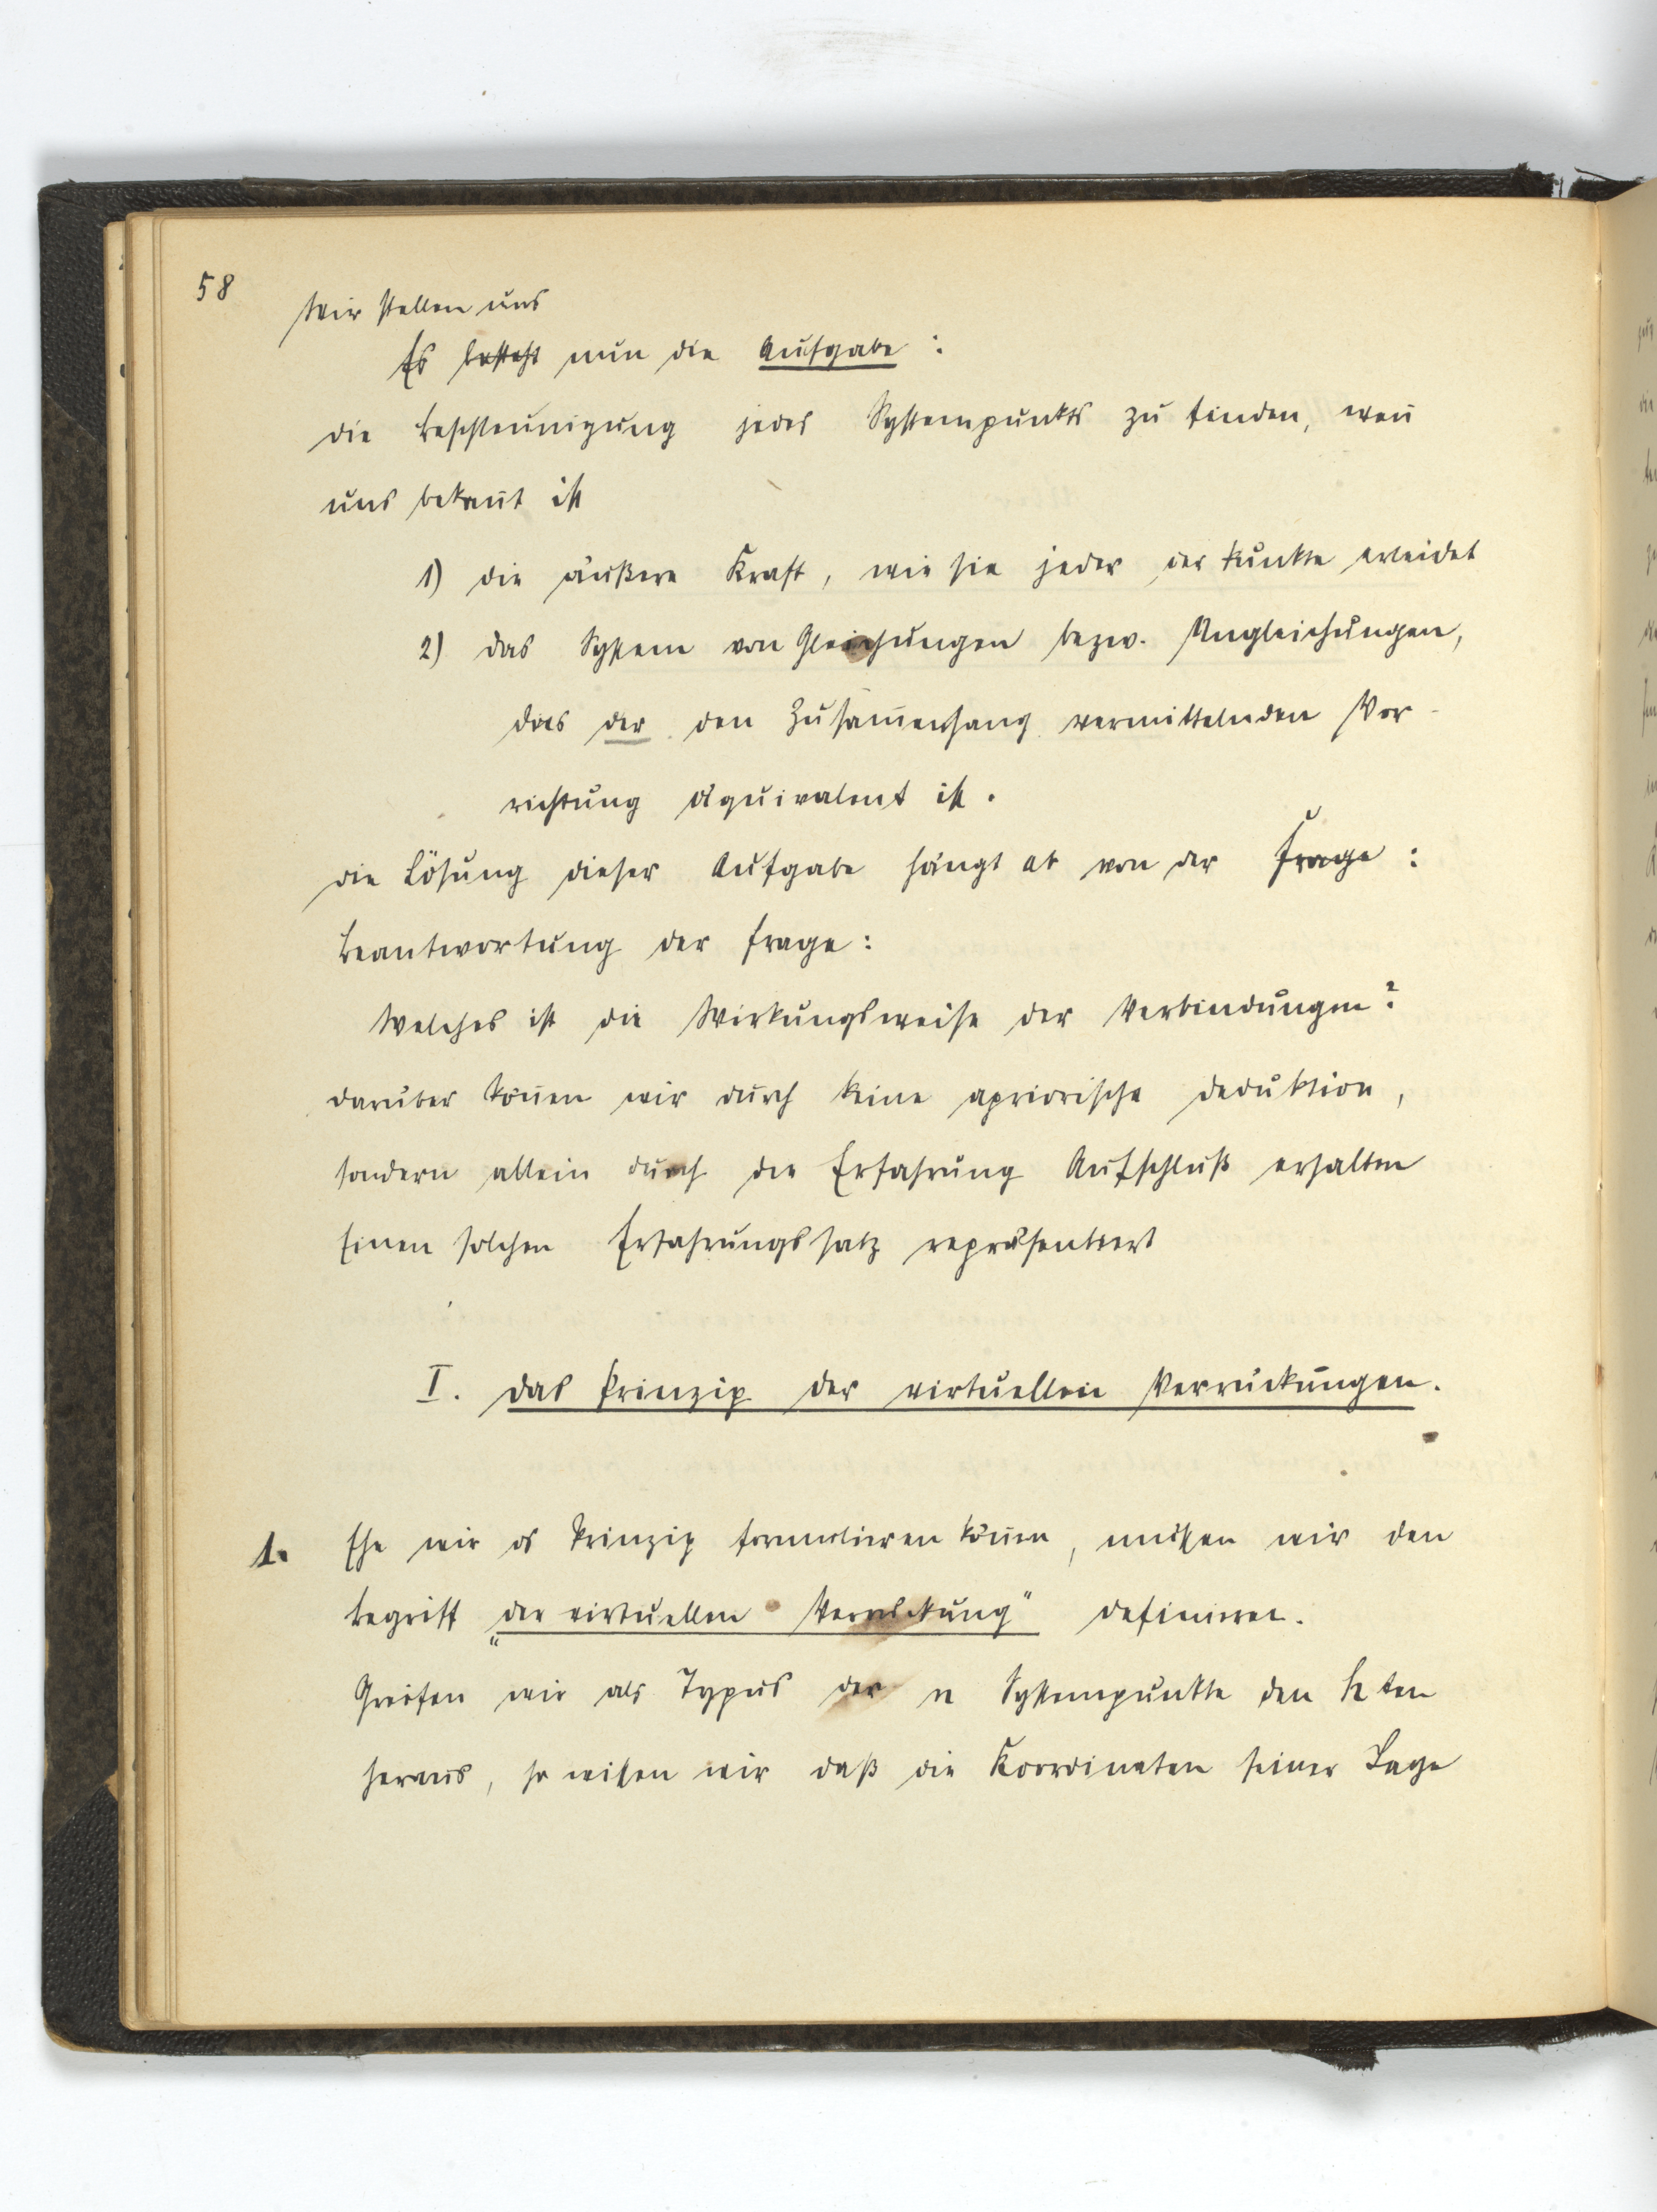 58
Wir stellen uns
Es besteht nun die Aufgabe:
die Beschleunigung jedes Systempunkts zu finden, weñ
uns bekañt ist
1) die äußere Kraft, wie sie jeder der Punkte erleidet
2) das System von Gleichungen bezw. Ungleichungen,
das der den Zusam̃enhang vermittelnden Vor-
richtung äquivalent ist.
die Lösung dieser Aufgabe hängt ab von der Frage:
Beantwortung der Frage:
Welches ist die Wirkungsweise der Verbindungen?
darüber köñen wir durch keine apriorische Deduktion,
sondern allein durch die Erfahrung Aufschluß erhalten
Einen solchen Erfahrungssatz repräsentiert
I. Das Prinzip der virtuellen Verrückungen.
1. Ehe wir ds Prinzip formulieren köñen, müssen wir den
Begriff „der virtuellen Verrückung" definieren.
Greifen wir als Typus der n Systempunkte den hten
heraus, so wissen wir daß die Koordinaten seiner Lage